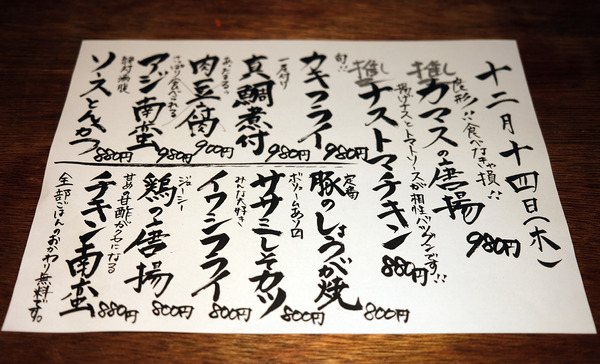 十二月十四日(木)
推し カマスの唐揚 980円
良形!!食べなきゃ損!!
推し ナストマチキン 880円
揚げナスとトマトソースが相性バツグンです!!
旬!!
カキフライ 980円
一尾付け
真鯛煮付 980円
あったまる
肉豆腐 900円
さっぱり食べられる
アジ南蛮 980円
絶対満腹
ソースとんかつ 880円
定番
豚のしょうが焼 800円
ボリュームあり
ササミしそカツ 800円
みんな大好き
イワシフライ 800円
ジューシー
鶏の唐揚 800円
甘めの甘酢がクセになる
チキン南蛮 880円
全部ごはんのおかわり無料です。